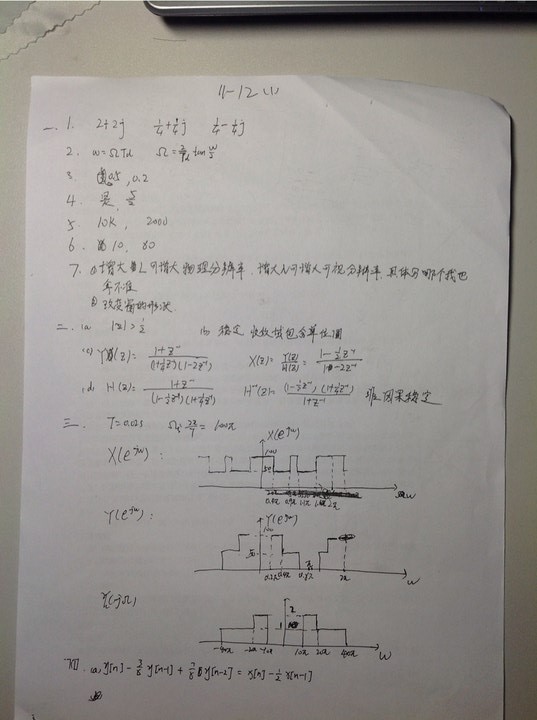 11-12(1)
一、1. 2+2j  1/4+1/4j  1/4-1/4j
2. ω=ΩTd  Ω=2/Td tan ω/2
3. 0.5, 0.2
4. 是, 5/2
5. 10K, 2000
6. 10, 80
7. ①增大L可增大物理分辨率, 增大N可增大可视分辨率, 具体分哪个我也
拿不准
② 改变窗的形状
二、(a) |z|>1/2  (b) 稳定 收敛域包含单位圆
(c) Y(z)= (1+z⁻¹)/((1+1/4z⁻¹)(1-2z⁻¹))  X(z)= Y(z)/H(z) = (1-1/2z⁻¹)/(1-2z⁻¹)
(d) H(z)= (1+z⁻¹)/((1-1/2z⁻¹)(1+1/4z⁻¹))  H⁻¹(z)= (1-1/2z⁻¹)(1+1/4z⁻¹)/(1+z⁻¹)  因果稳定
三、T=0.02s  2π/T=100π
X(e^jω):  X(e^jω)
100
50
ω
Y(e^jω):  Y(e^jω)
100
50
0.2π 0.4π 0.8π 2π ω
(jΩ)
2
1
-20π -10π 10π 20π 40π ω
四、(a) y[n]-3/8 y[n-1]+ y[n-2]=x[n]-1/2 x[n-1]